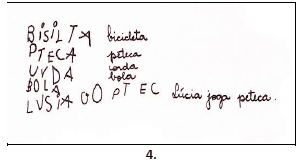 BISILTA bicicleta
PTECA peteca
UVDA corda
BOLA bola
LVSIA OO PT EC Lúcia joga peteca.
4.